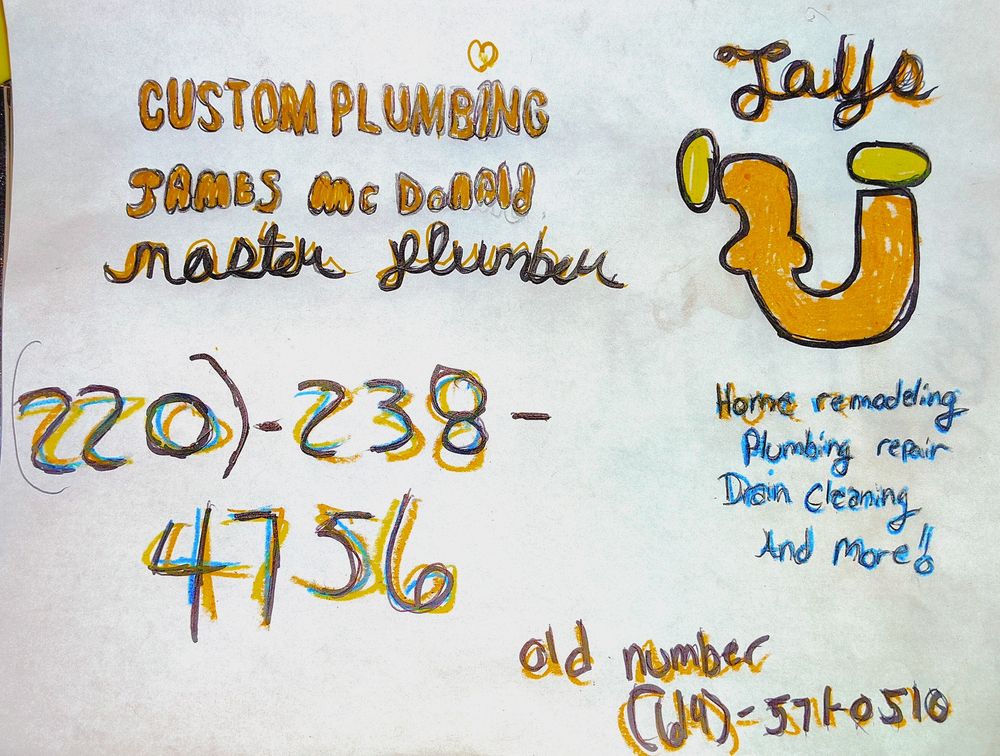 CUSTOM PLUMBING
JAMES Mc DonAld
master plumber
(220)-238-
4756
Jays
Home remodeling
Plumbing repair
Drain Cleaning
And More!!
old number
(614)-571-0510